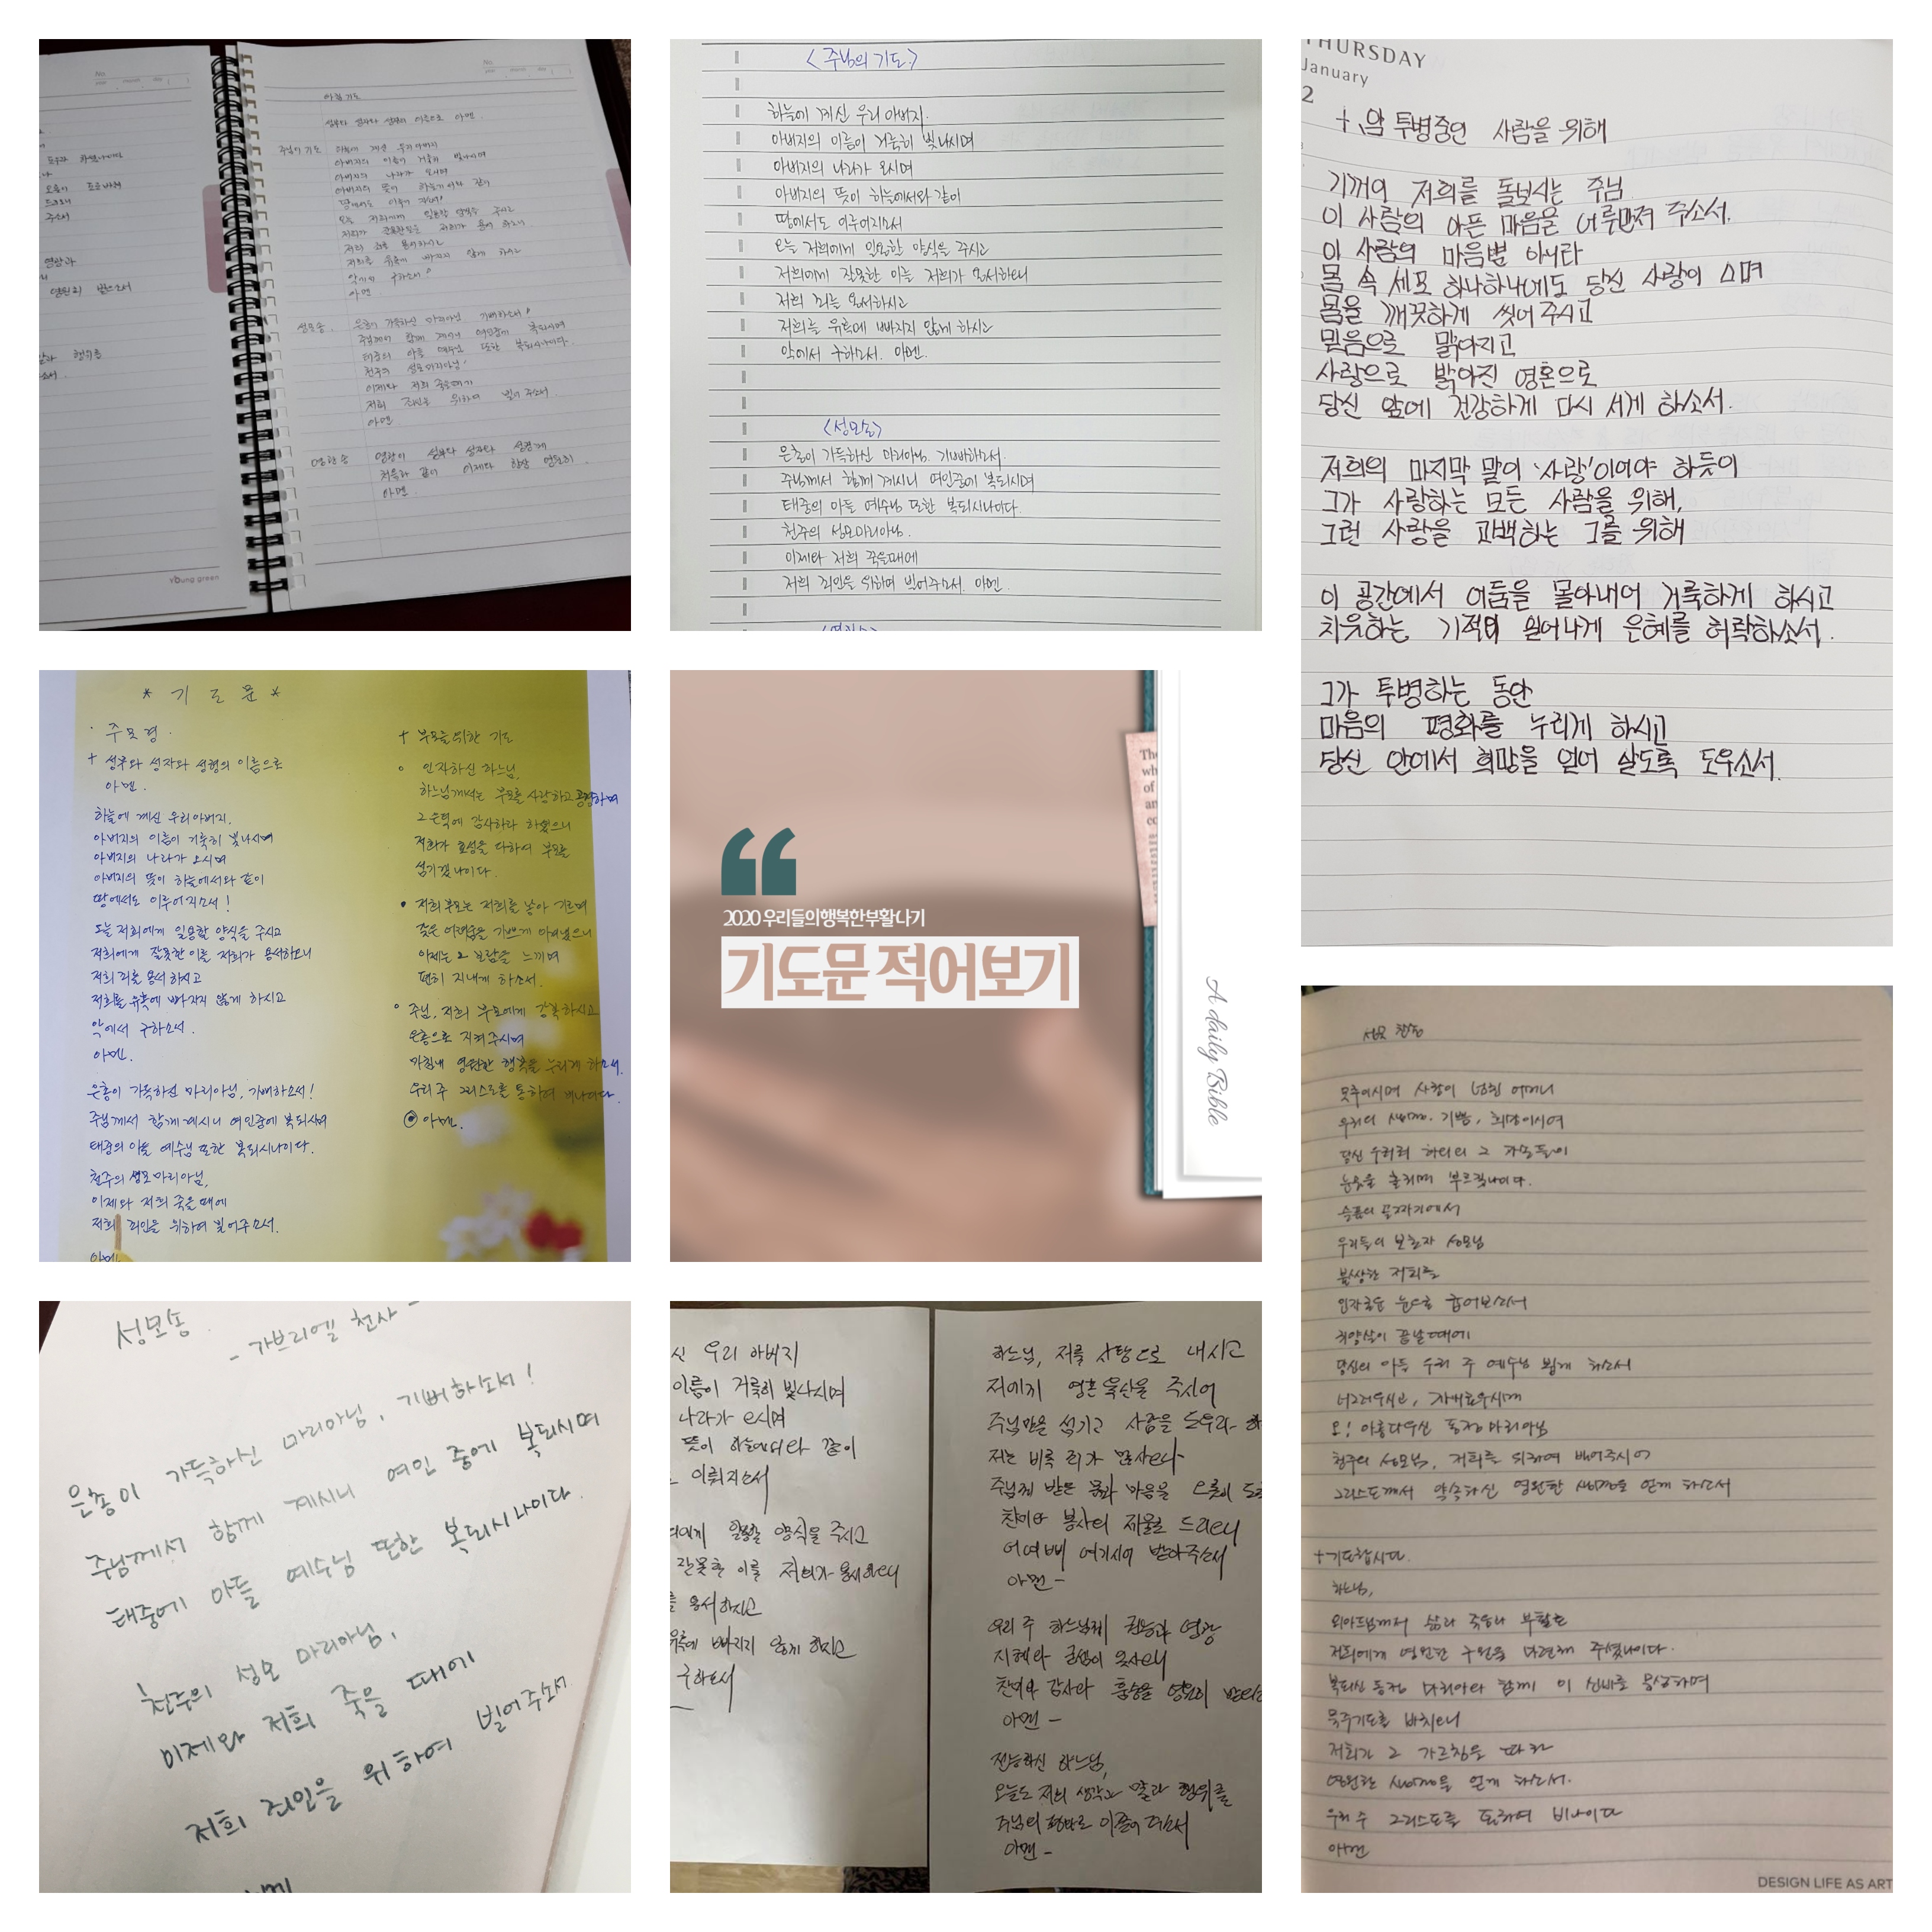 아침 기도
성부와 성자와 성령의 이름으로 아멘.
주님의 기도 하늘에 계신 우리 아버지
아버지의 이름이 거룩히 빛나시며
아버지의 나라가 오시며
아버지의 뜻이 하늘에서와 같이
저희를 유혹에 빠지지 않게 하시고
악에서 구하소서
아멘
성모송 은총이 가득하신 마리아님 기뻐하소서!
주님께서 함께 계시니 여인중에 복되시며
태중의 아들 예수님 또한 복되시나이다.
천주의 성모마리아님!
이제와 저희 죽을때에
저희 죄인을 위하여 빌어 주소서.
아멘
영광송 영광이 성부와 성자와 성령께
처음과 같이 이제와 항상 영원히
아멘
young green
<주님의 기도>
하늘에 계신 우리 아버지.
아버지의 이름이 거룩히 빛나시며
아버지의 나라가 오시며
아버지의 뜻이 하늘에서와 같이
땅에서도 이루어지소서
오늘 저희에게 일용할 양식을 주시고
저희에게 잘못한 이를 저희가 용서하오니
저희 죄를 용서하시고
저희를 유혹에 빠지지 않게 하시고
악에서 구하소서. 아멘.
<성모송>
은총이 가득하신 마리아님. 기뻐하소서.
주님께서 함께 계시니 여인중에 복되시며
태중의 아들 예수님 또한 복되시나이다.
천주의 성모마리아님.
이제와 저희 죽을때에
저희 죄인을 위하여 빌어주소서. 아멘.
THURSDAY
January
2
+ 암 투병중인 사람을 위해
기꺼이 저희를 돌보시는 주님
이 사람의 아픈 마음을 어루만져 주소서.
이 사람의 마음뿐 아니라
몸 속 세포 하나하나에도 당신 사랑이 스며
몸을 깨끗하게 씻어 주시고
믿음으로 맑아지고
사랑으로 밝아진 영혼으로
당신 앞에 건강하게 다시 서게 하소서.
저희의 마지막 말이 '사랑'이어야 하듯이
그가 사랑하는 모든 사람을 위해,
그런 사랑을 고백하는 그를 위해
이 공간에서 어둠을 몰아내어 거룩하게 하시고
치유하는 기적이 일어나게 은혜를 허락하소서.
그가 투병하는 동안
마음의 평화를 누리게 하시고
당신 안에서 희망을 얻어 살도록 도우소서.
* 기 도 문 *
· 주모경 ·
+ 성부와 성자와 성령의 이름으로
아멘.
하늘에 계신 우리아버지.
아버지의 이름이 거룩히 빛나시며
아버지의 나라가 오시며
아버지의 뜻이 하늘에서와 같이
땅에서도 이루어지소서!
오늘 저희에게 일용할 양식을 주시고
저희에게 잘못한 이를 저희가 용서하오니
저희 죄를 용서 하시고
저희를 유혹에 빠지지 않게 하시고
악에서 구하소서.
아멘.
은총이 가득하신 마리아님, 기뻐하소서!
주님께서 함께 계시니 여인중에 복되시며
태중의 아들 예수님 또한 복되시나이다.
천주의 성모 마리아님,
이제와 저희 죽을 때에
저희 죄인을 위하여 빌어주소서.
아멘
+ 부모를 위한 기도
인자하신 하느님,
하느님께서는 부모를 사랑하고 공경하며
그 은덕에 감사하라 하셨으니
저희가 효성을 다하여 부모를
섬기겠나이다.
저희 부모는 저희를 낳아 기르며
갖은 어려움을 기쁘게 이겨냈으니
이제는 그 보람을 느끼며
편히 지내게 하소서.
주님, 저희 부모에게 강복하시고
은총으로 지켜주시며
마침내 영원한 행복을 누리게 하소서.
우리 주 그리스도를 통하여 비나이다.
아멘.
2020 우리들의행복한부활나기
기도문 적어보기
A daily Bible
성모송
- 가브리엘 천사 -
은총이 가득하신 마리아님, 기뻐하소서!
주님께서 함께 계시니 여인 중에 복되시며
태중에 아들 예수님 또한 복되시나이다.
천주의 성모 마리아님,
이제와 저희 죽을 때에
저희 죄인을 위하여 빌어주소서.
신 우리 아버지
이름이 거룩히 빛나시며
나라가 오시며
뜻이 하늘에서와 같이
이뤄지소서
일용할 양식을 주시고
잘못한 이를 저희가 용서하오니
용서하시고
빠지지 않게 하시고
구하소서
하느님, 저를 사랑으로 내시고
저에게 영혼 육신을 주시어
주님만을 섬기고 사람을 도우라
저는 비록 죄가 많사오나
주님께 받은 몸과 마음을 오롯이
찬미와 봉사의 제물로 드리오니
어여삐 여기시어 받아주소서
아멘 -
우리 주 하느님께 권능과 영광
지혜와 굳셈이 있사오니
찬미와 감사와 흠숭을 영원히
아멘 -
전능하신 하느님,
오늘도 저희 생각과 말과 행위를
주님의 평화로 이끌어 주소서
아멘 -
성모 찬송
모후이시며 사랑이 넘친 어머니
우리의 생명, 기쁨, 희망이시여
당신 우러러 하와의 그 자손들이
눈물을 흘리며 부르짖나이다.
슬픔의 골짜기에서
우리들의 보호자 성모님
불쌍한 저희를
인자로운 눈으로 굽어보소서
귀양살이 끝날 때에
당신의 아들 우리 주 예수님 뵙게 하소서
너그러우시고, 자애로우시며
오! 아름다우신 동정 마리아님
천주의 성모님, 저희를 위하여 빌어주시어
그리스도께서 약속하신 영원한 생명을 얻게 하소서
+ 기도합시다.
하느님,
외아드님께서 삶과 죽음과 부활로
저희에게 영원한 구원을 마련해 주셨나이다.
복되신 동정 마리아와 함께 이 신비를 묵상하며
묵주기도를 바치오니
저희가 그 가르침을 따라
영원한 생명을 얻게 하소서.
우리 주 그리스도를 통하여 비나이다
아멘
DESIGN LIFE AS ART